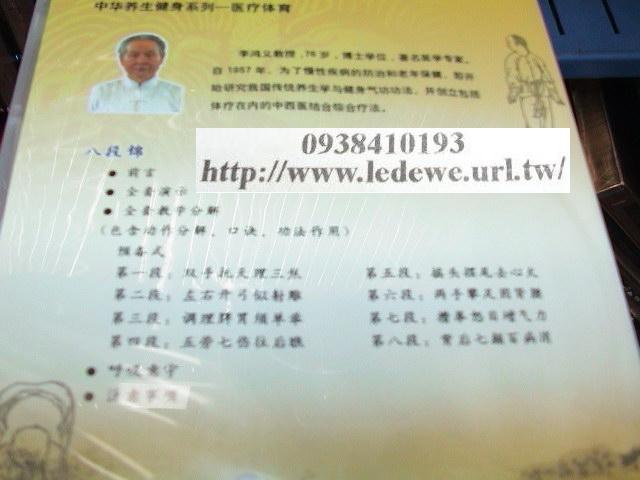 中华养生健身系列—医疗体育
李鸿义教授，76岁，博士学位，著名医学专家。
自1957年，为了慢性疾病的防治和老年保健，都开
始研究我国传统养生学与健身气功功法，并创立包括
体疗在内的中西医结合综合疗法。
0938410193
http://www.ledewe.url.tw/
八段锦
● 前言
● 全套演示
● 全套教学分解
（包含动作分解、口诀、功法作用）
预备式
第一段：双手托天理三焦
第二段：左右开弓似射雕
第三段：调理脾胃须单举
第四段：五劳七伤往后瞧
第五段：摇头摆尾去心火
第六段：两手攀足固肾腰
第七段：攒拳怒目增气力
第八段：背后七颠百病消
● 呼吸意守
● 注意事项